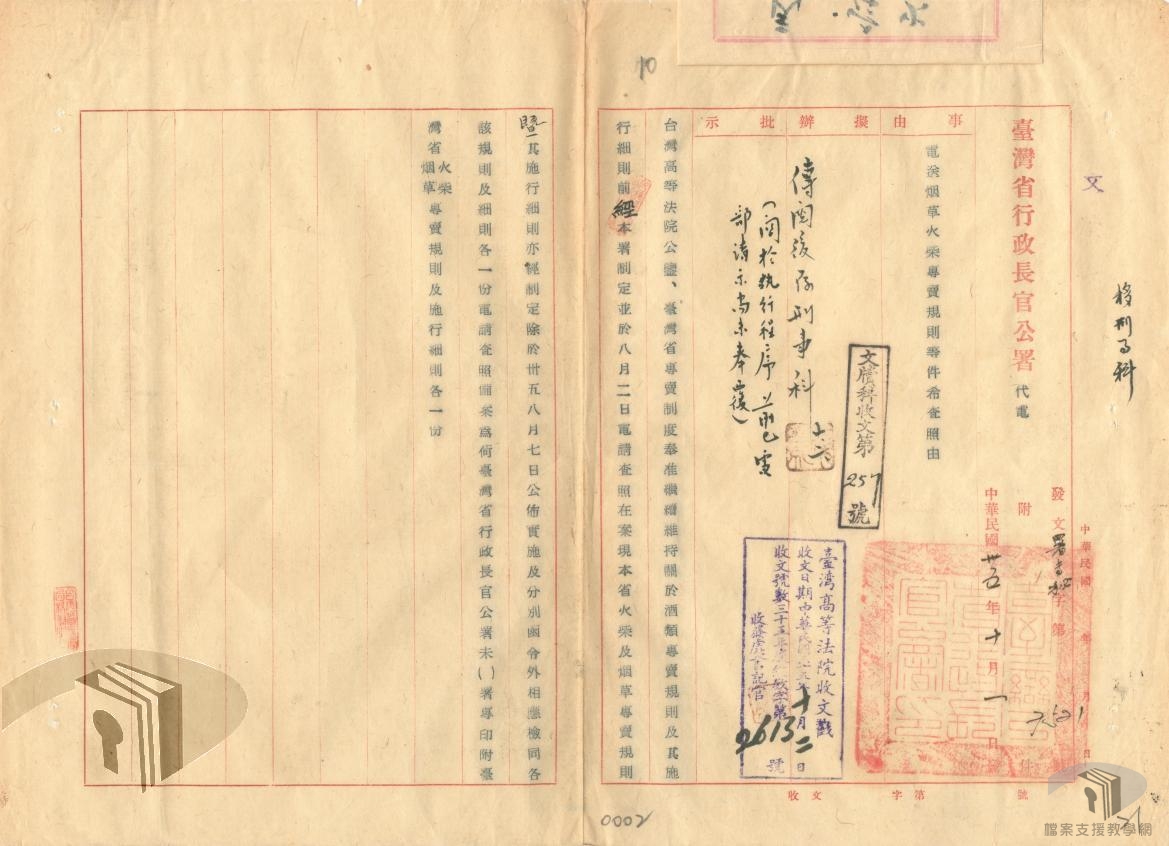 文
移刑事科
臺灣省行政長官公署
代電
事由
擬辦
批示
電送烟草火柴專賣規則等件希查照由
發文署
字第
號
附
件
中華民國卅五年十月一日
中華民國
年
月
日
收文
字第
號
傳閱後存刑事科
(關於執行程序前已電
部請示尚未奉復)
文牘科收文第
257
號
臺灣高等法院收文戳
收文日期中華民國卅五年十月二日
收文號數三十五年
字第
2613
號
收發處書記官
台灣高等法院公鑒、臺灣省專賣制度奉准繼續維持關於酒類專賣規則及其施
行細則前經本署制定並於八月二日電請查照在案現本省火柴及烟草專賣規則
暨其施行細則亦經制定除於卅五八月七日公佈實施及分別函令外相應檢同各
該規則及細則各一份電請查照備案為荷臺灣省行政長官公署未()署專印附臺
灣省火柴烟草專賣規則及施行細則各一份
10
0002
檔案支援教學網